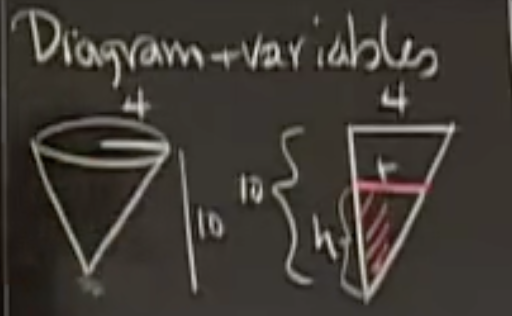 Diagram+variables
4
10
4
10
r
h